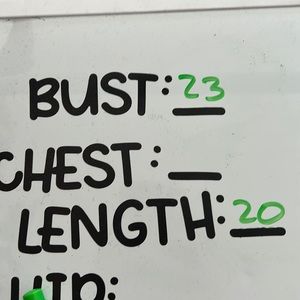 BUST: 23
CHEST: __
LENGTH: 20
HIP: